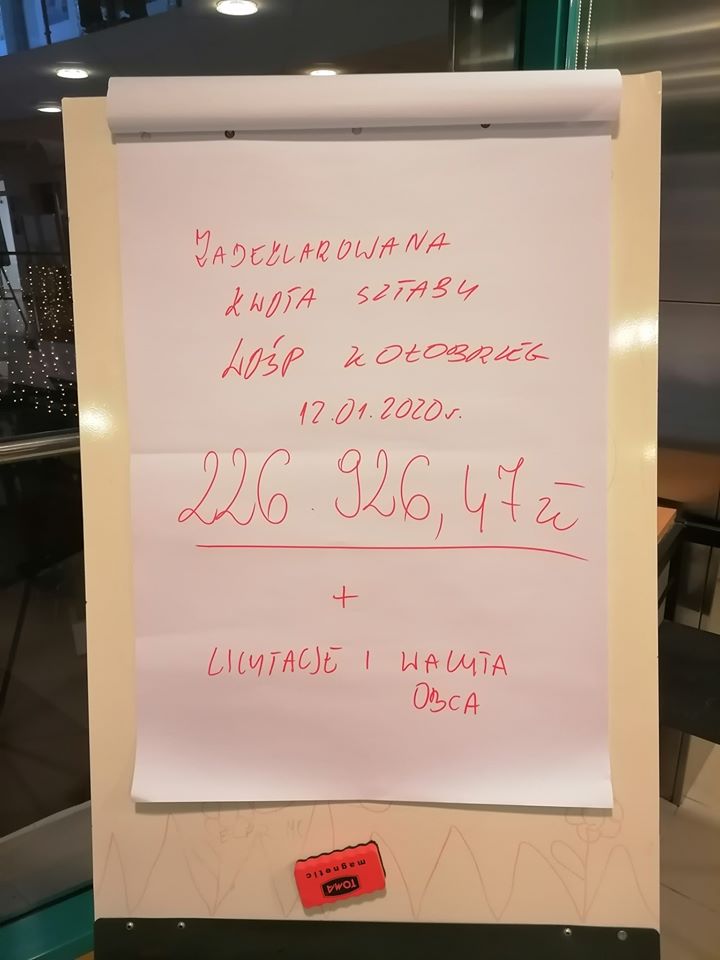 ZADEKLAROWANA
KWOTA SZTABU
WOŚP KOŁOBRZEG
12.01.2020r.
226.926,47 zł
+
LICYTACJE I WALUTA
OBCA
TOMA
magnetic